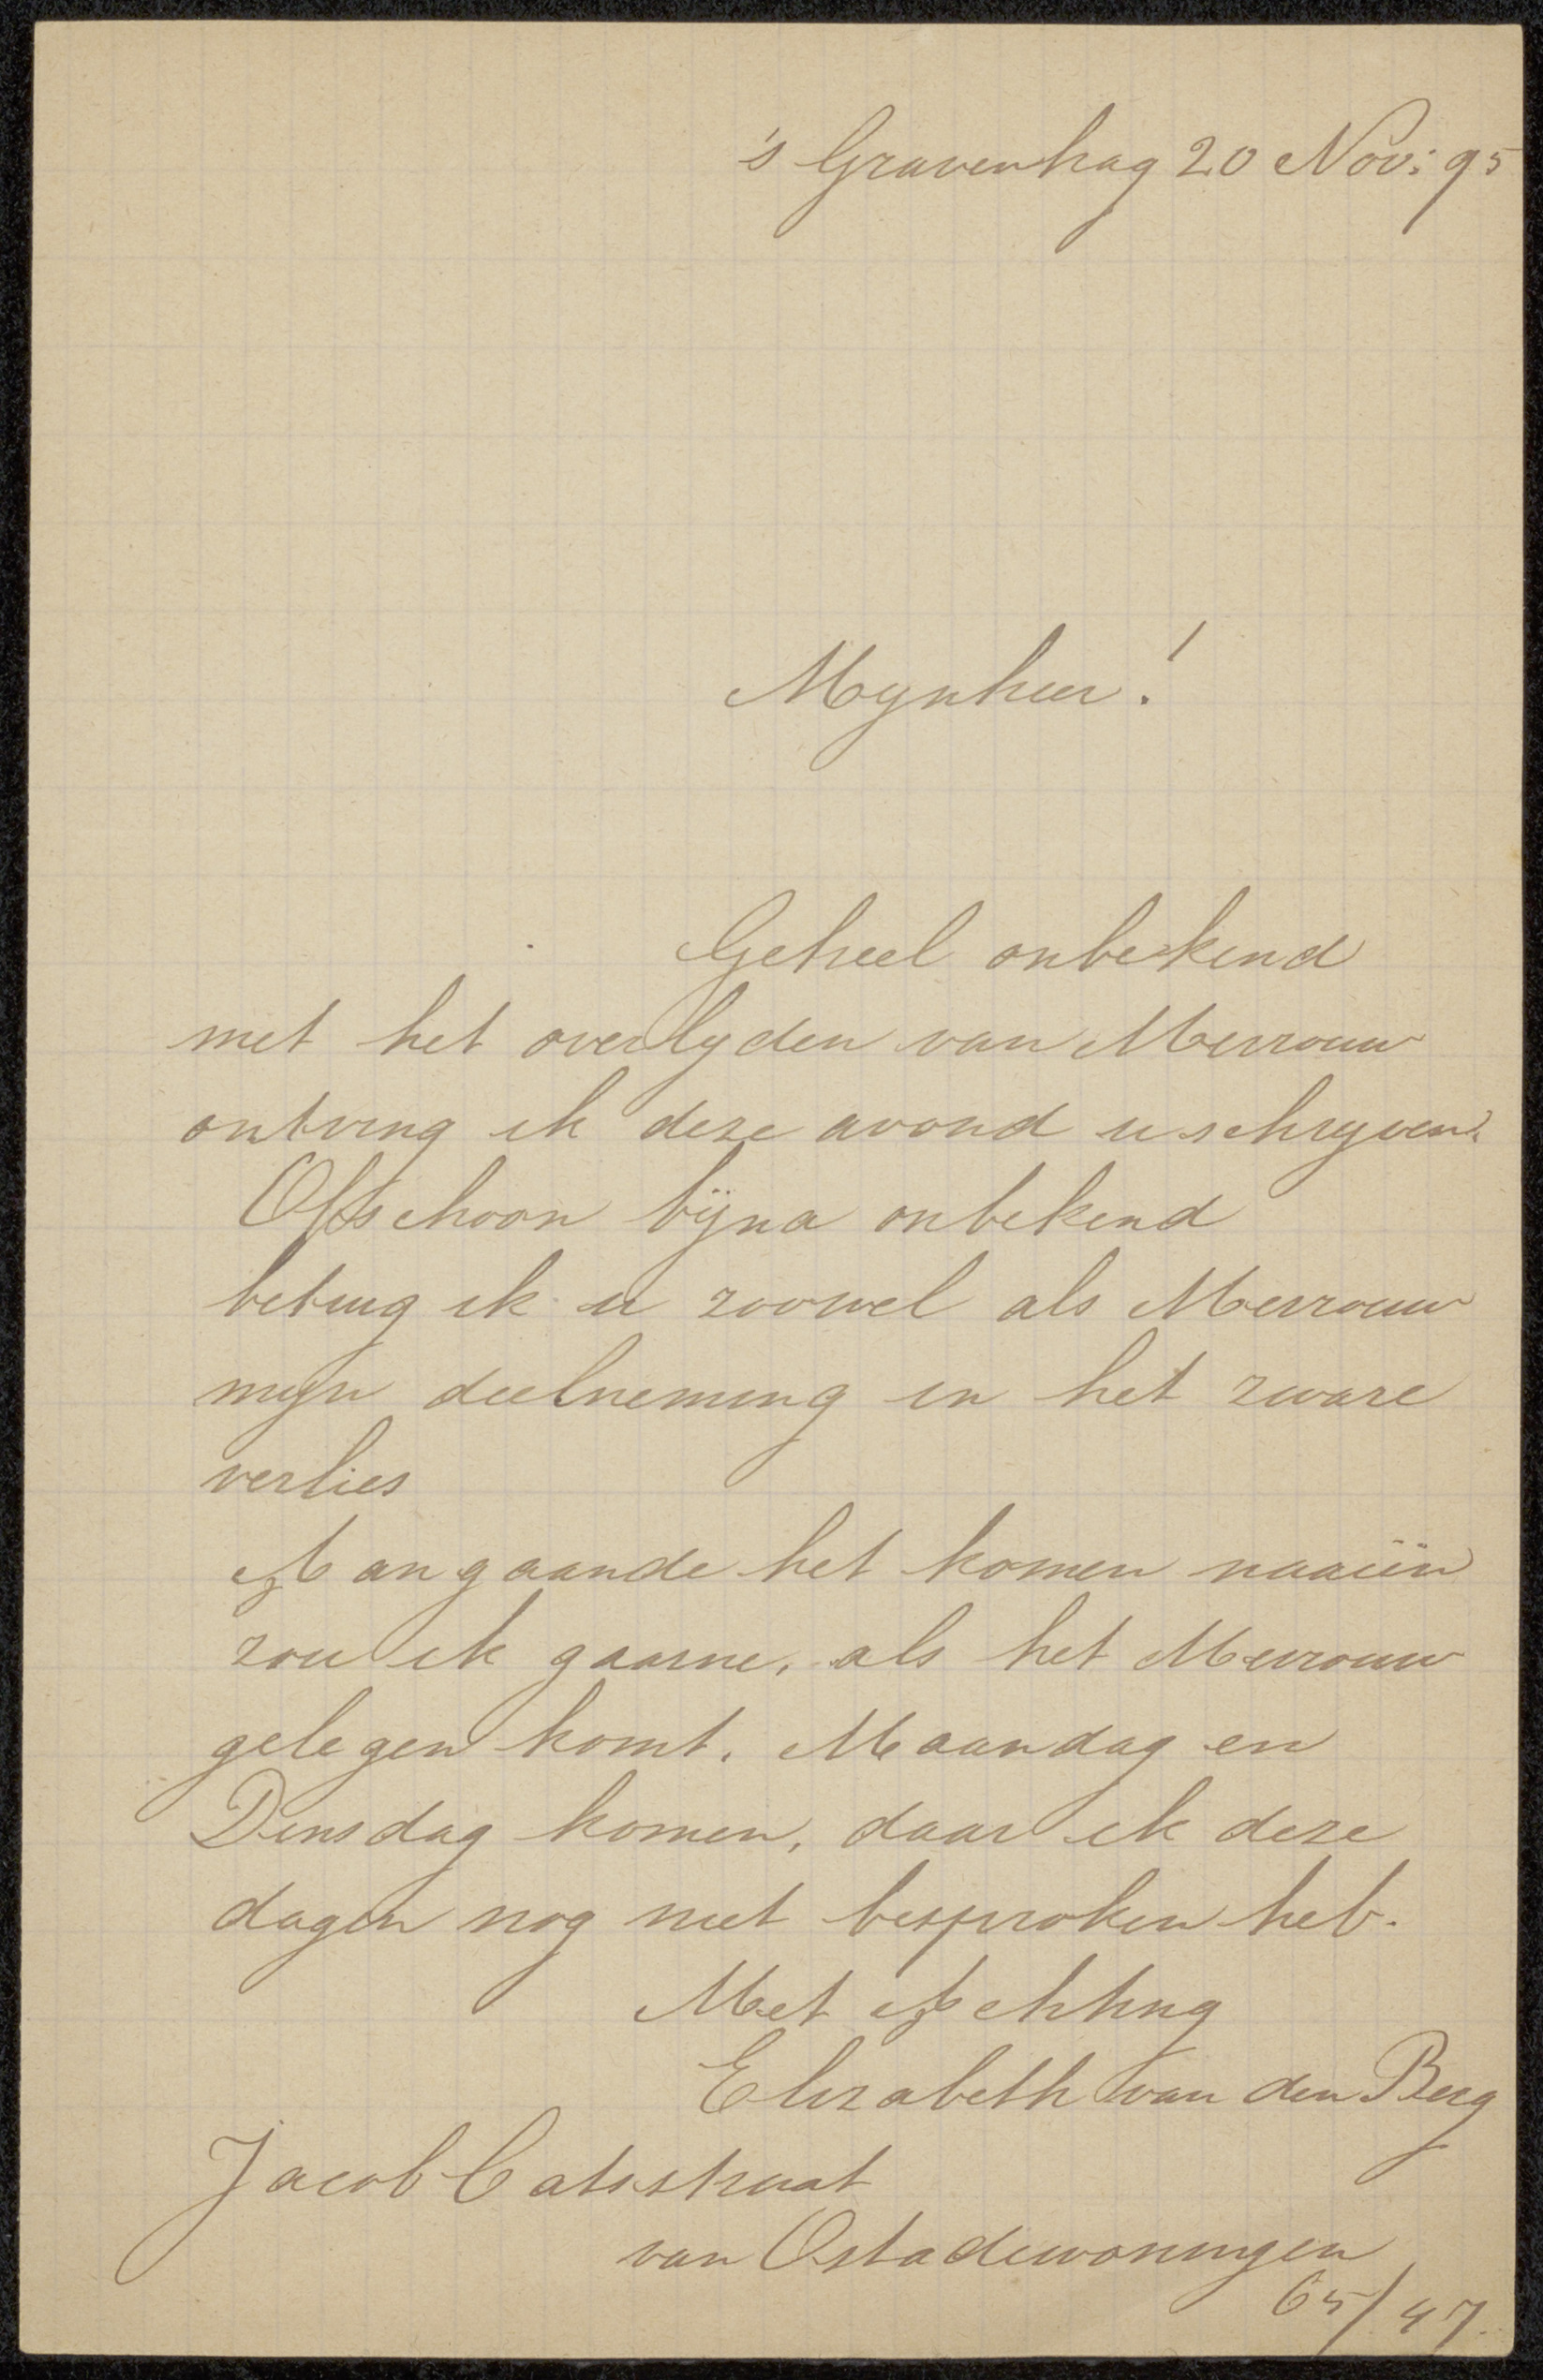 's Gravenhag 20 Nov: 95
Mynheer!
Geheel onbekend
met het overlyden van Mevrouw
ontving ik deze avond u schryven.
Ofschoon bÿna onbekend
betuig ik u zoowel als Mevrouw
myn deelneming in het zware
verlies
Aangaande het komen naaiën
zou ik gaarne, als het Mevrouw
gelegen komt, Maandag en
Dinsdag komen, daar ik deze
dagen nog niet besproken heb.
Met Achting
Elizabeth van den Berg
Jacob Catsstraat
van Ostadewoningen
65/47.